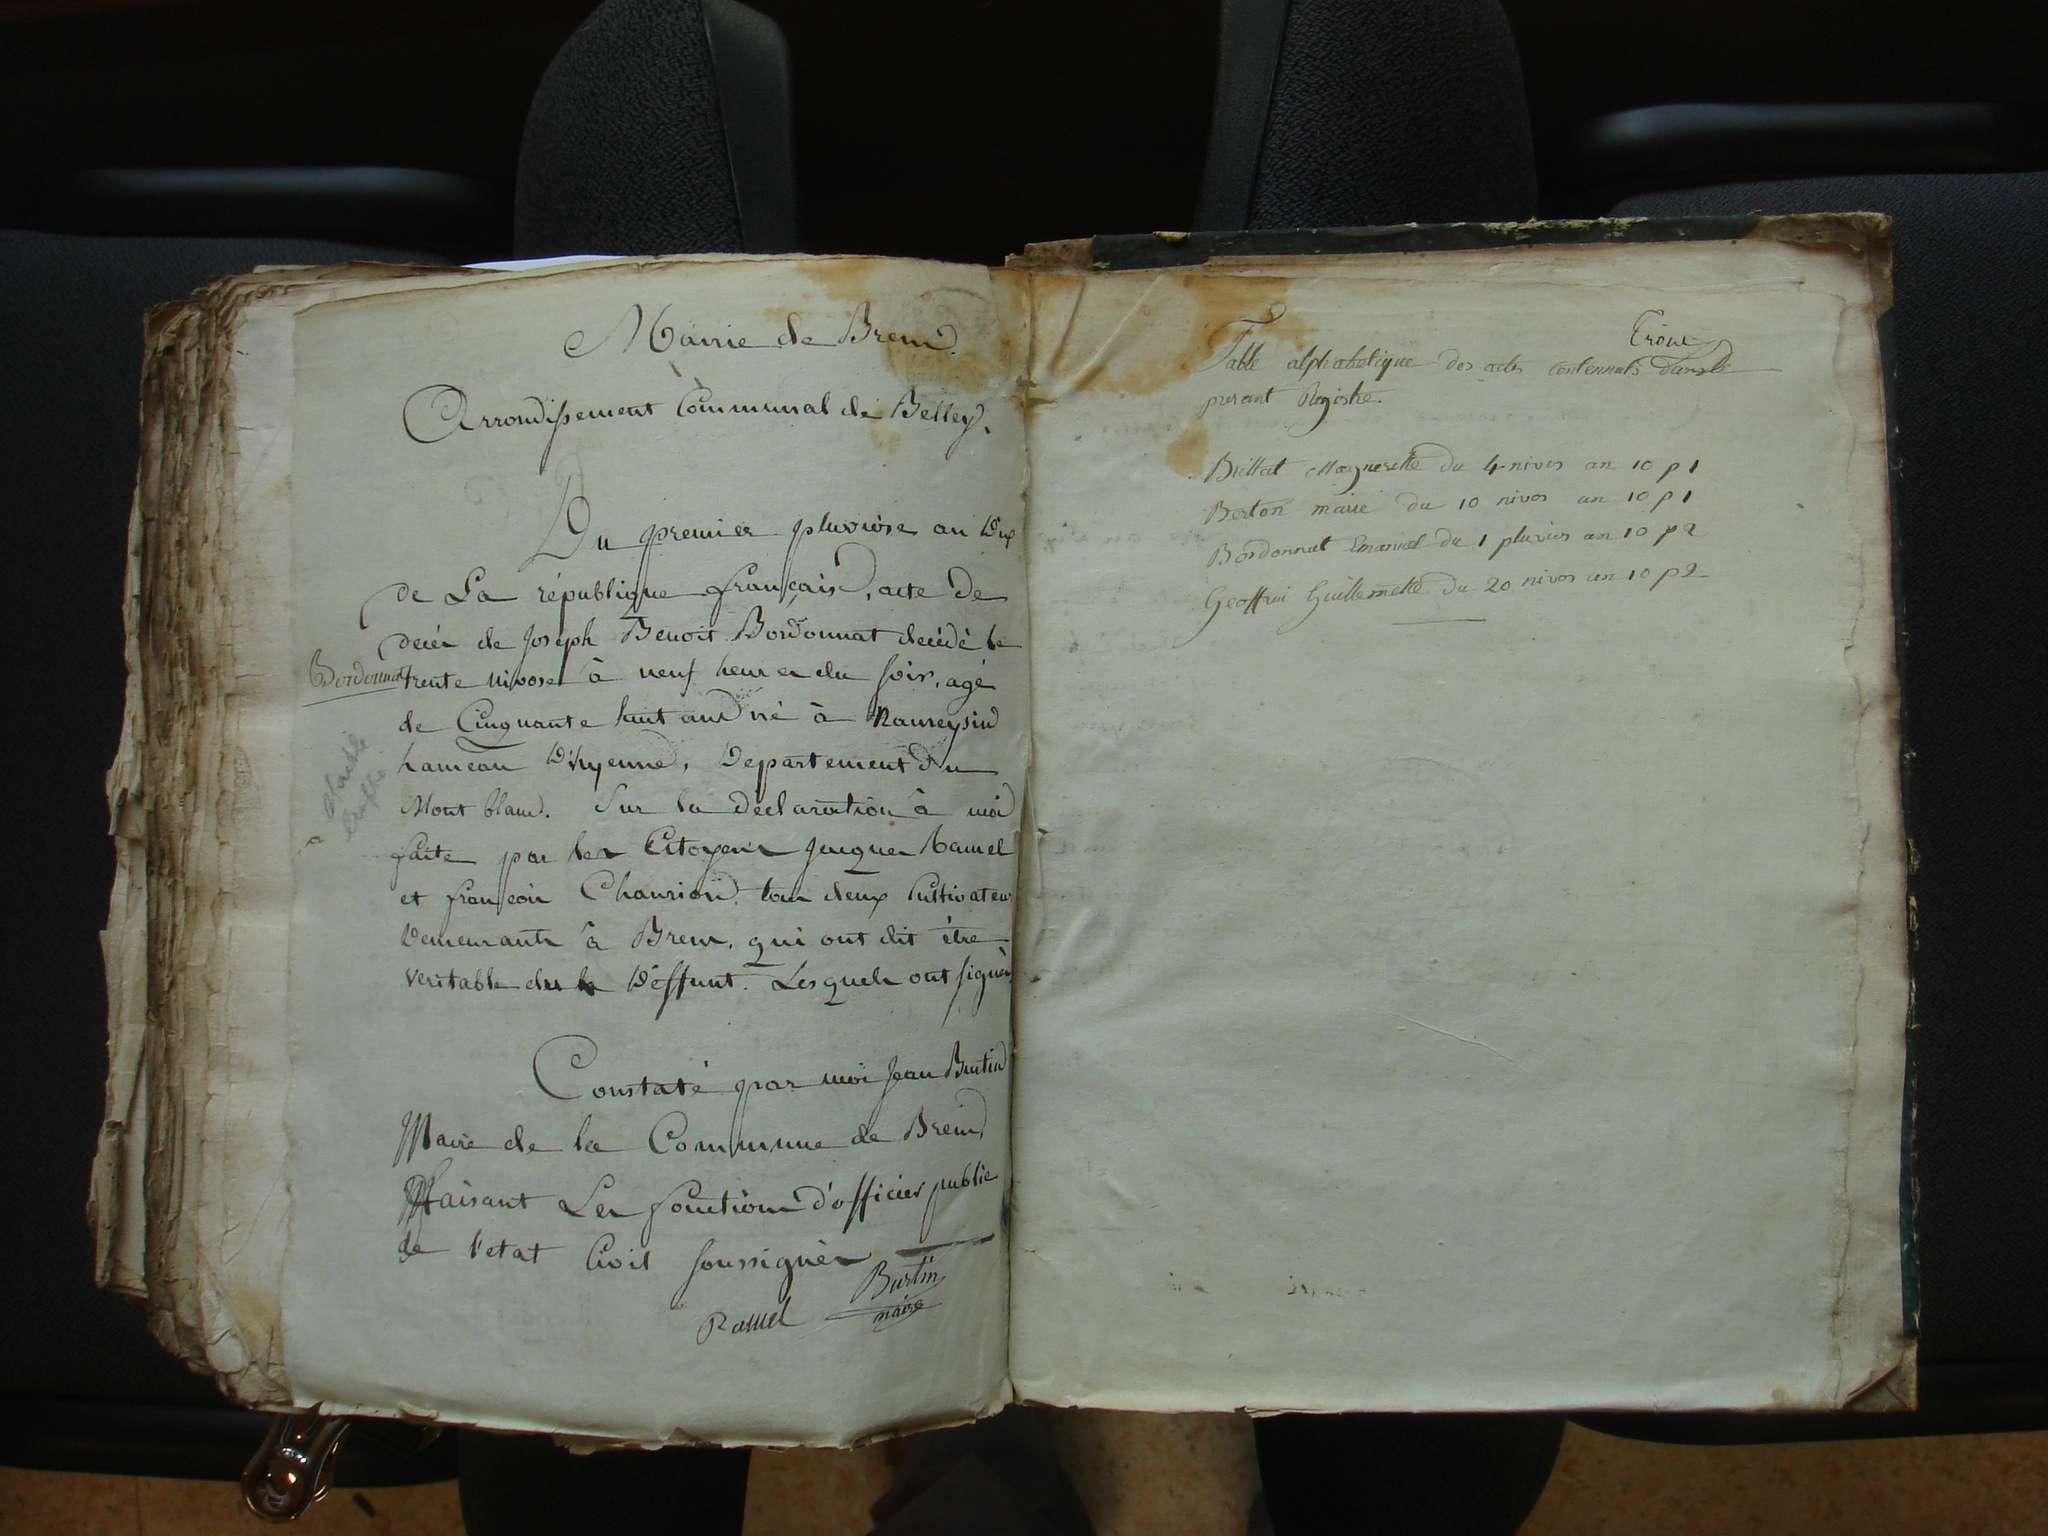 Mairie de Brens.
Arrondissement Communal de Belley.
Du premier pluviôse an Dix
de La république français, acte de
décès de Joseph Benoit Bordonnat decédé le
Bordonnat
trente nivose à neuf heures du soir, agé
de Cinquante huit ans né à
hameau D'hyenne, Département du
Mont blanc. Sur la déclaration à moi
faite par les Citoyens Jacques Ramel
et françois tous deux Cultivateurs
Demeurants à Brens, qui ont dit être
veritable Déffunt. Lesquels ont signés,
Constaté par moi Jean Burtin
Maire de la Commune de Brens
faisant Les fonctions d'officier public
de l'etat Civil soussignés
Burtin
maire
Ramel
Table alphabetique des actes contennuts dans le
presant Registre.
Billat Margueritte du 4 nivos an 10 p 1
Berton marie du 10 nivos an 10 p 1
Bordonnat Emanuel du 1 pluvios an 10 p 2
Geoffroi Guillemette du 20 nivos an 10 p 2